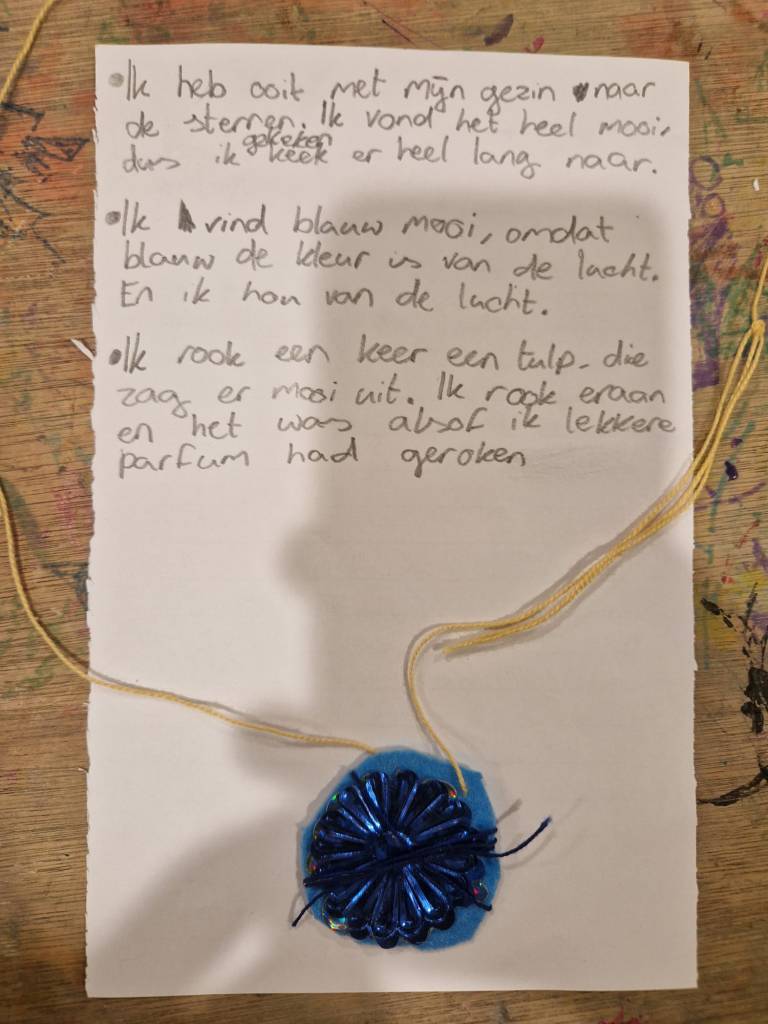 •Ik heb ooit met mijn gezin naar
de sterren. Ik vond het heel mooi,
gekeken
dus ik keek er heel lang naar.
•Ik vind blauw mooi, omdat
blauw de kleur is van de lucht.
En ik hou van de lucht.
•Ik rook een keer een tulp. die
zag er mooi uit. Ik rook eraan
en het was alsof ik lekkere
parfum had geroken